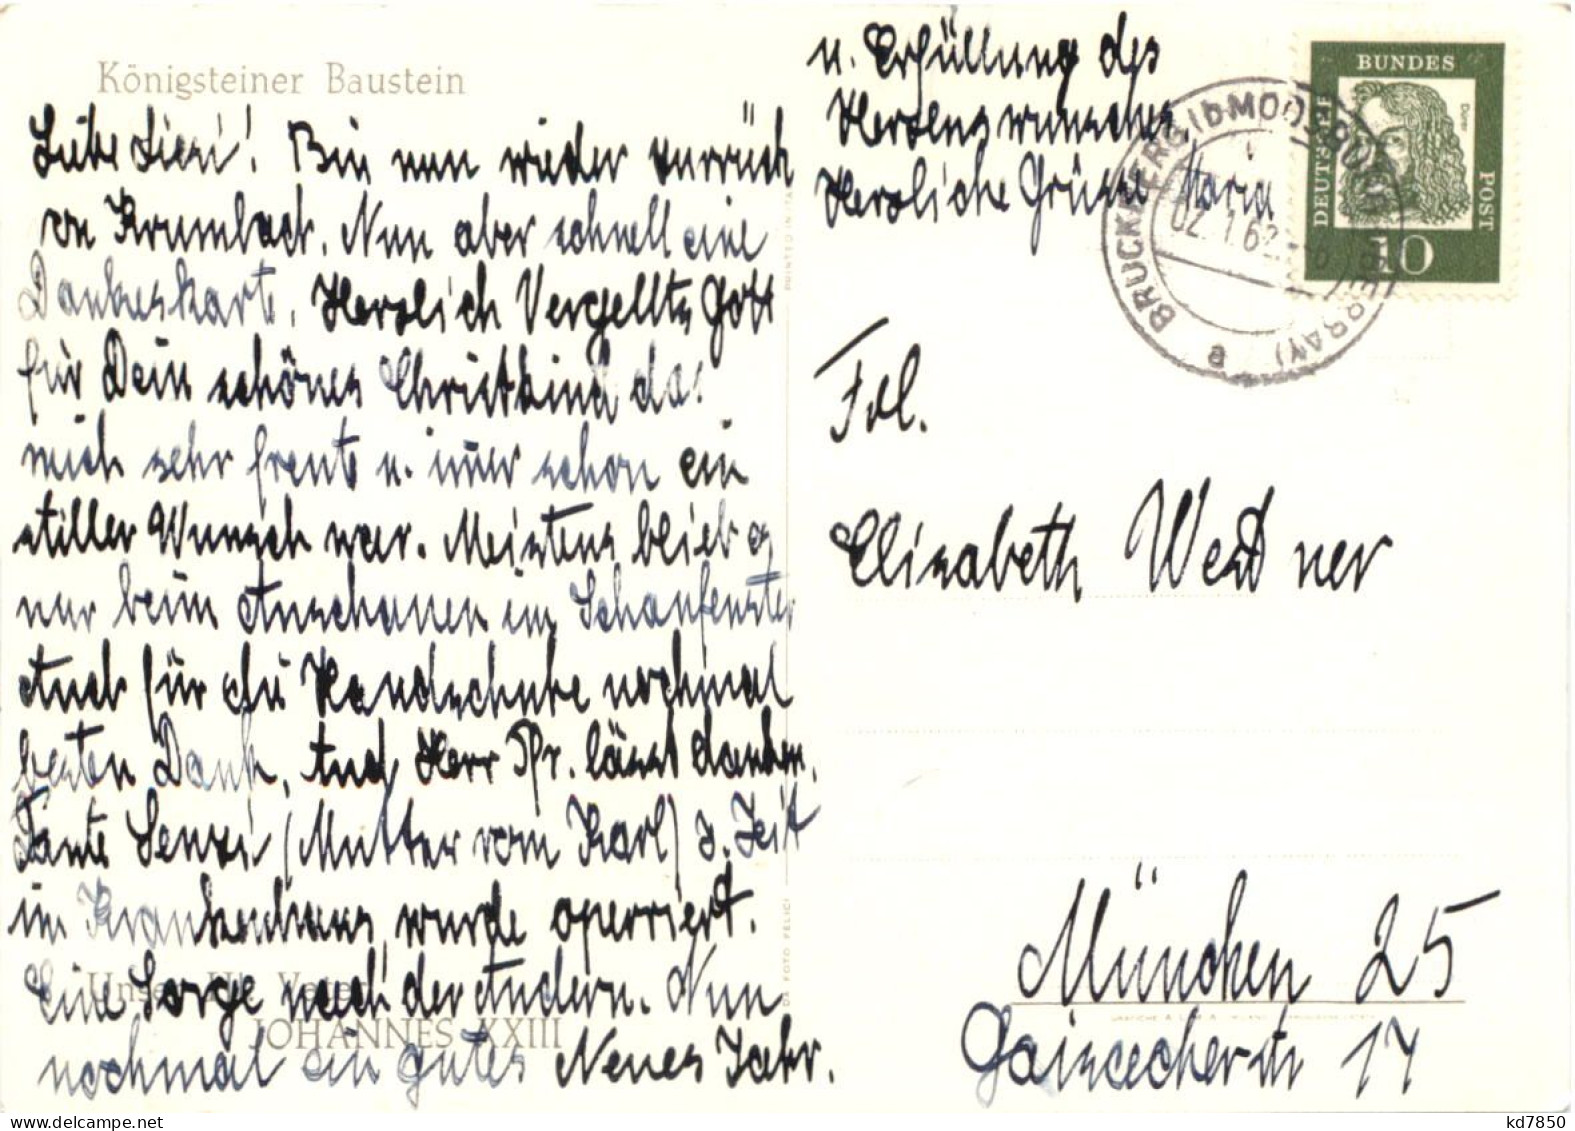 Königsteiner Baustein
Liebe Liesi! Bin nun wieder zurrück
von Krumbach. Nun aber schnell eine
Dankeskarte. Herzlich Vergellts Gott
für Dein schönes Christkind das
mich sehr freute u. immer schon ein
stiller Wunsch war. Meistens blieb es
nur beim Anschauen im Schaufenster
Auch für die Handschuhe nochmal
besten Dank. Auch Herr Pfr. lässt danken.
Tante Senzi (Mutter vom Karl) z. Zeit
im Krankenhaus, wurde operriert.
Eine Sorge nach der Andern. Nun
nochmal ein gutes Neues Jahr.
Unser Hl. Vater
JOHANNES XXIII
u. Erfüllung des
Herzenswunsches
Herzliche Grüsse Maria
DEUTSCHE BUNDES POST
Dürer
10
BRUCKBERG üb MOOSBURG
02.1.62
e
Frl.
Elisabeth Weidner
München 25
Gaissacherstr 17
DA FOTO FELICI